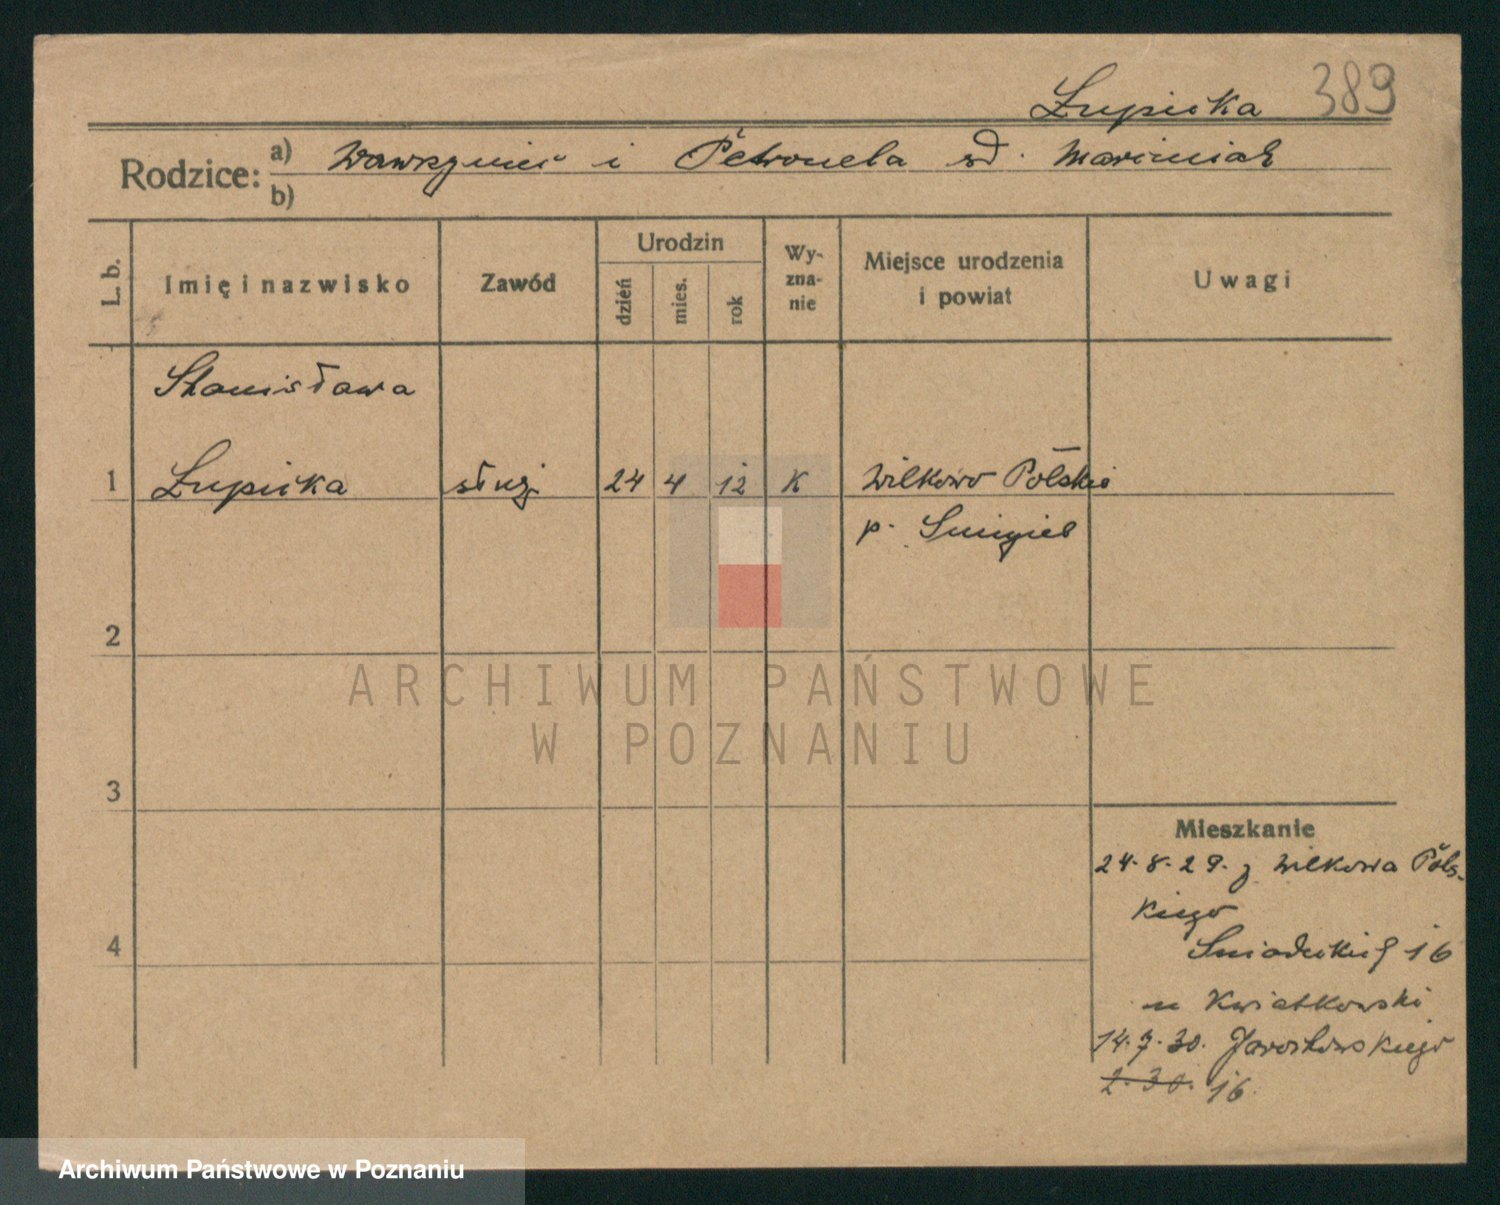 Łupicka 389
Rodzice: a) Wawrzyniec i Petronela rd. Marciniak
b)
L. b. Imię i nazwisko Zawód Urodzin dzień mies. rok Wy-zna-nie Miejsce urodzenia i powiat Uwagi
Stanisława
1 Łupicka służ. 24 4 12 K Wilkowo Polskie
p. Śmigiel
2
3
4
Mieszkanie
24.8.29. z Wilkowa Pols-
kiego
Śniadeckich 16
u Kwiatkowski
14.7.30. Jarochowskiego
2.30. 16
ARCHIWUM PAŃSTWOWE
W POZNANIU
Archiwum Państwowe w Poznaniu